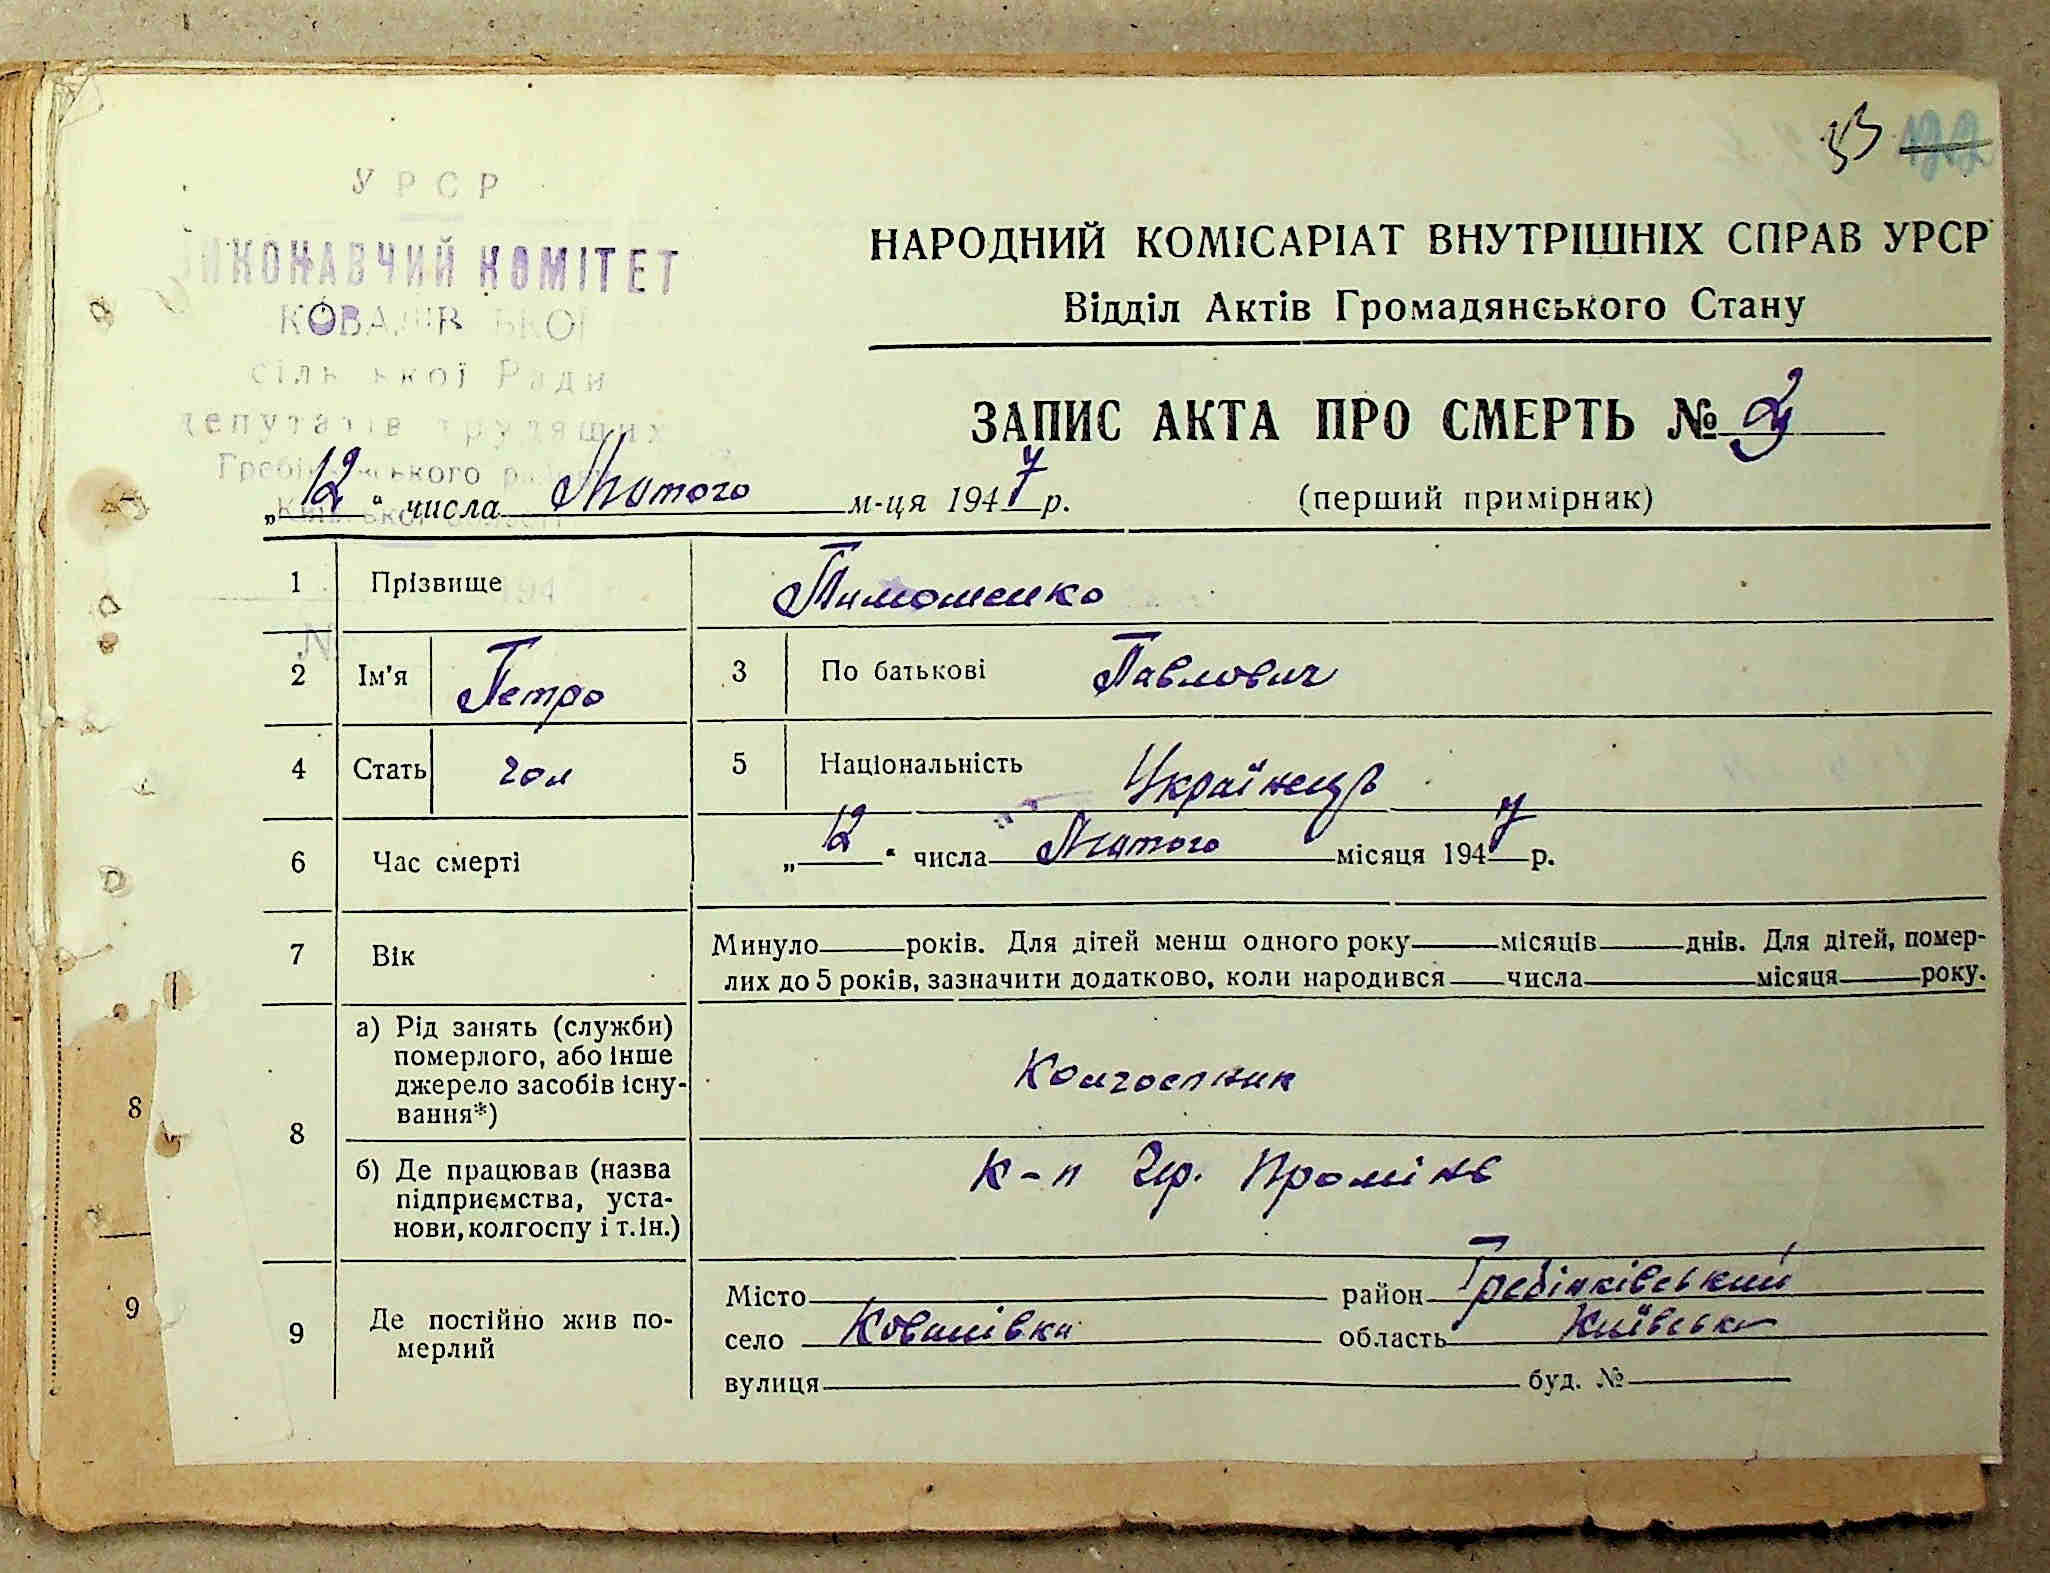 33 122
УРСР
ВИКОНАВЧИЙ КОМІТЕТ
КОВАЛІВСЬКОЇ
сільської Ради
депутатів трудящих
Гребінківського району
Київської області
194
№
НАРОДНИЙ КОМІСАРІАТ ВНУТРІШНІХ СПРАВ УРСР
Відділ Актів Громадянського Стану
ЗАПИС АКТА ПРО СМЕРТЬ №
„12“ числа Лютого м-ця 1947 р.
(перший примірник)
1 Прізвище Тимошенко
2 Ім'я Петро 3 По батькові Павлович
4 Стать чол 5 Національність Українець
6 Час смерті „12“ числа Лютого місяця 1947 р.
7 Вік Минуло років. Для дітей менш одного року місяців днів. Для дітей, помер-
лих до 5 років, зазначити додатково, коли народився числа місяця року.
8 а) Рід занять (служби)
померлого, або інше
джерело засобів існу-
вання*)
Колгоспник
б) Де працював (назва
підприємства, уста-
нови, колгоспу і т.ін.)
к-п Чер. Промінь
9 Де постійно жив по-
мерлий
Місто район Гребінківський
село Ковалівка область Київська
вулиця буд. №
8
9